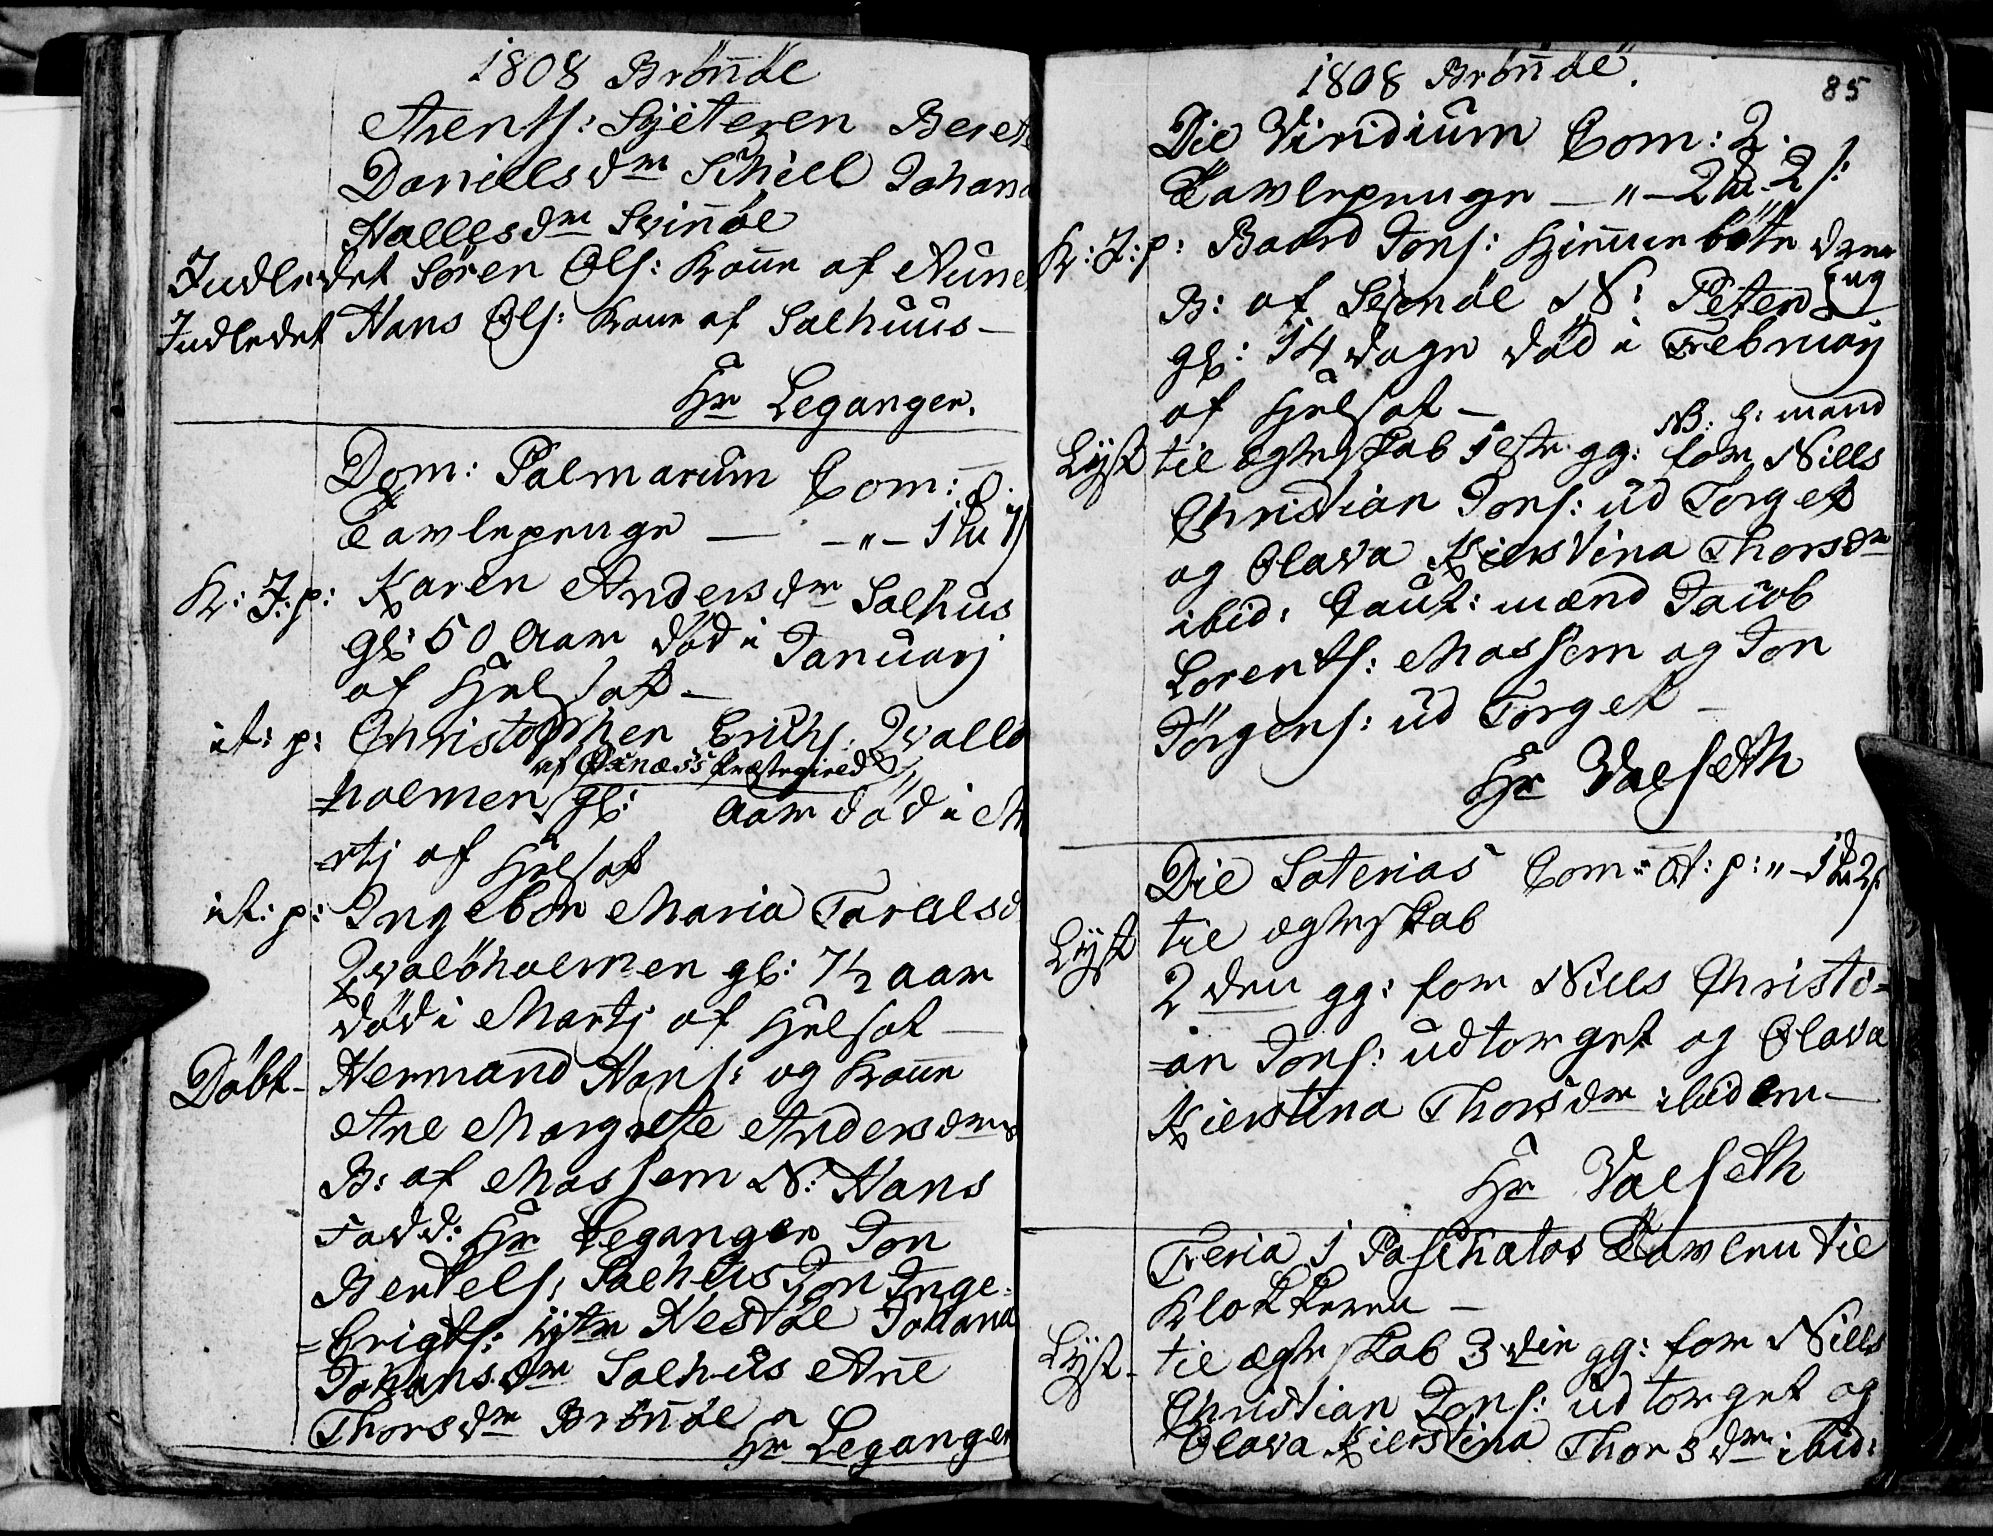 1808 Brönnöe
Arents: Sÿeteren Beret
Danielsdr Schiell Johana
Hallesdr Svinnöe
Indledet Sören Ols: Kone af
Indledet Hans Ols: Kone af Salhuus -
Hr Leganger.
Dom: Palmarum Com: 0.
Tavlepenge — - „ - 1
K: J: p: Karen Andersdr Salhus
gl: 50 Aar död i Januarj
af Helsot -
it: p: Christopher Erichs: Qvallö
af Oxnæss Præstegield
=holmen, gl: Aar död i M
=rtj af Helsot
it: p: Ingebor Maria Tarelsd
Qvalöholmen gl: 7½ aar
död i Martj af Helsot —
Döbt - Hermand Hans: og Kone
Ane Margrete Andersdr
B: af Massem N: Hans
Fadd: Hr Leganger Jon
Bentels: Salhus Jon Inge=
=brigts: Hestöe Johana
Johansdr Salhus Ane
Thorsdr Brönnöe
Hr Leganger
1808 Brönnöe. 85
Die Viridium Com: 2.
Tavlepenge — „ - 2 2 s:
K: J: p: Baard Jons: dreng
B: af N: Peter
gl: 14 dage död i Februarj
af Helsot -
N B. G: mand
Lyst til ægteskab 1ste gg: for Nills
Christian Jons: ud Torget
og Olava Kierstina Thorsdr
ibid: Caut: mænd Jacob
Lorents: Massem og Jon
Jörgens: ud Torget -
Hr Valseth
Die Soterias Com= 0 t: p: „ - 1 2 s:
Lyst til ægteskab
2den gg: for Nills Christi=
=an Jons: udtorget og Olava
Kierstina Thorsdr ibidem -
Hr Valseth
Feria 1 Paschatos Tavlen til
Klokkeren -
Lyst - til ægteskab 3die gg: for Nills
Christian Jons: ud torget og
Olava Kierstina Thorsdr ibid: